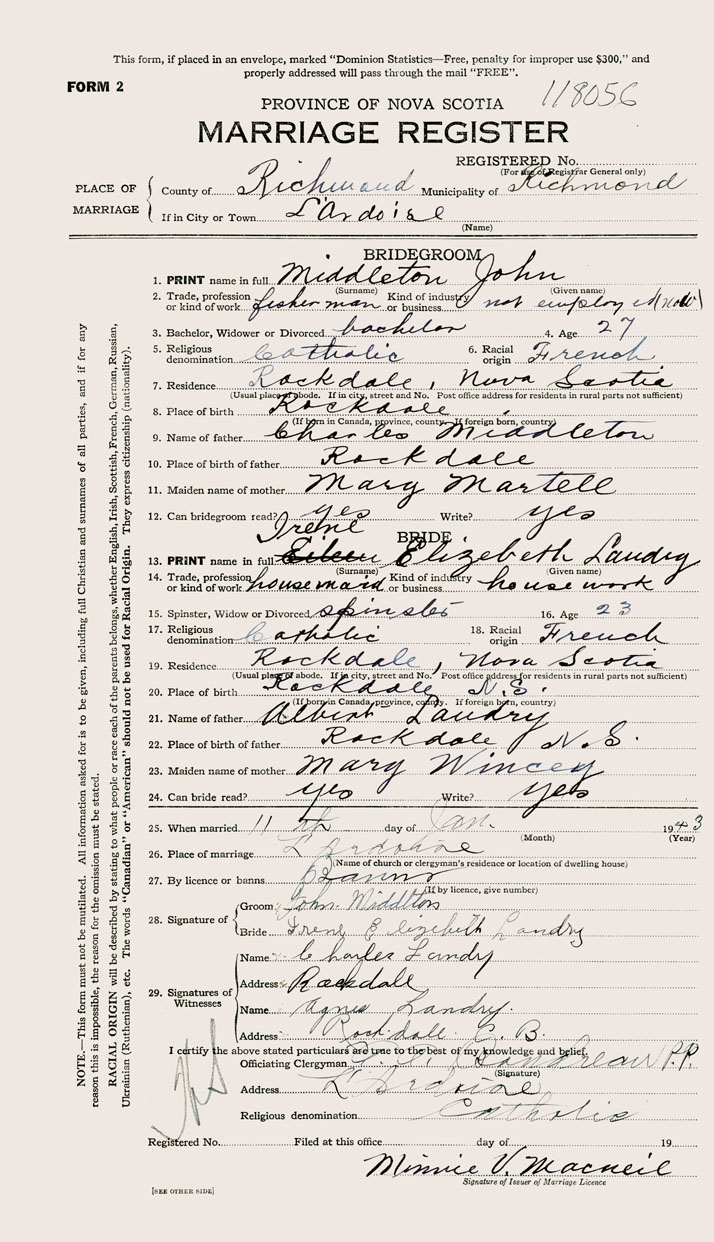 This form, if placed in an envelope, marked "Dominion Statistics—Free, penalty for improper use $300," and
properly addressed will pass through the mail "FREE".
FORM 2
118056
PROVINCE OF NOVA SCOTIA
MARRIAGE REGISTER
REGISTERED No.
(For use of Registrar General only)
PLACE OF MARRIAGE
County of Richmond Municipality of Richmond
If in City or Town L'Ardoise
(Name)
BRIDEGROOM
1. PRINT name in full Middleton John
(Surname) (Given name)
2. Trade, profession or kind of work fisherman Kind of industry or business not employed (now)
3. Bachelor, Widower or Divorced bachelor 4. Age 27
5. Religious denomination Catholic 6. Racial origin French
7. Residence Rockdale, Nova Scotia
(Usual place of abode. If in city, street and No. Post office address for residents in rural parts not sufficient)
8. Place of birth Rockdale
(If born in Canada, province, county. If foreign born, country)
9. Name of father Charles Middleton
10. Place of birth of father Rockdale
11. Maiden name of mother Mary Martell
12. Can bridegroom read? yes Write? yes
BRIDE
Irene
13. PRINT name in full Eileen Elizabeth Landry
(Surname) (Given name)
14. Trade, profession or kind of work housemaid Kind of industry or business house work
15. Spinster, Widow or Divorced spinster 16. Age 23
17. Religious denomination Catholic 18. Racial origin French
19. Residence Rockdale, Nova Scotia
(Usual place of abode. If in city, street and No. Post office address for residents in rural parts not sufficient)
20. Place of birth Rockdale N.S.
(If born in Canada, province, county. If foreign born, country)
21. Name of father Albert Landry
22. Place of birth of father Rockdale N.S.
23. Maiden name of mother Mary Wincey
24. Can bride read? yes Write? yes
25. When married 11 th day of Jan. 1943
(Month) (Year)
26. Place of marriage L'Ardoise
(Name of church or clergyman's residence or location of dwelling house)
27. By licence or banns Banns
(If by licence, give number)
28. Signature of
Groom John Middleton
Bride Irene Elizabeth Landry
29. Signatures of Witnesses
Name Charles Landry
Address Rockdale
Name Agnes Landry.
Address Rockdale C. B.
I certify the above stated particulars are true to the best of my knowledge and belief.
Officiating Clergyman Landreau P.P.
(Signature)
Address L'Ardoise
Religious denomination Catholic
Registered No. Filed at this office day of 19
Minnie V. Macneil
Signature of Issuer of Marriage Licence
[SEE OTHER SIDE]
NOTE.—This form must not be mutilated. All information asked for is to be given, including full Christian and surnames of all parties, and if for any
reason this is impossible, the reason for the omission must be stated.
RACIAL ORIGIN will be described by stating to what people or race each of the parents belongs, whether English, Irish, Scottish, French, German, Russian,
Ukrainian (Ruthenian), etc. The words "Canadian" or "American" should not be used for Racial Origin. They express citizenship (nationality).